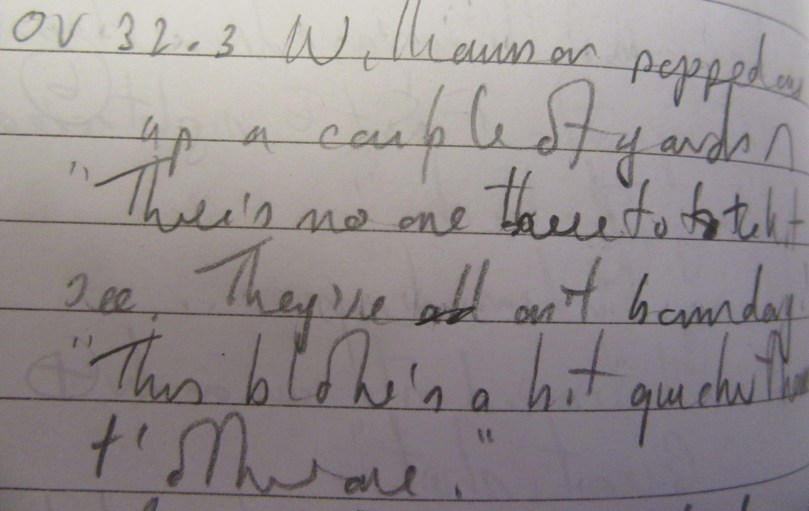 OV 32.3 Williamson popped
up a couple of yards
"There's no one there to
see. They're all on t'
"This bloke's a bit quicker than
t'other one."